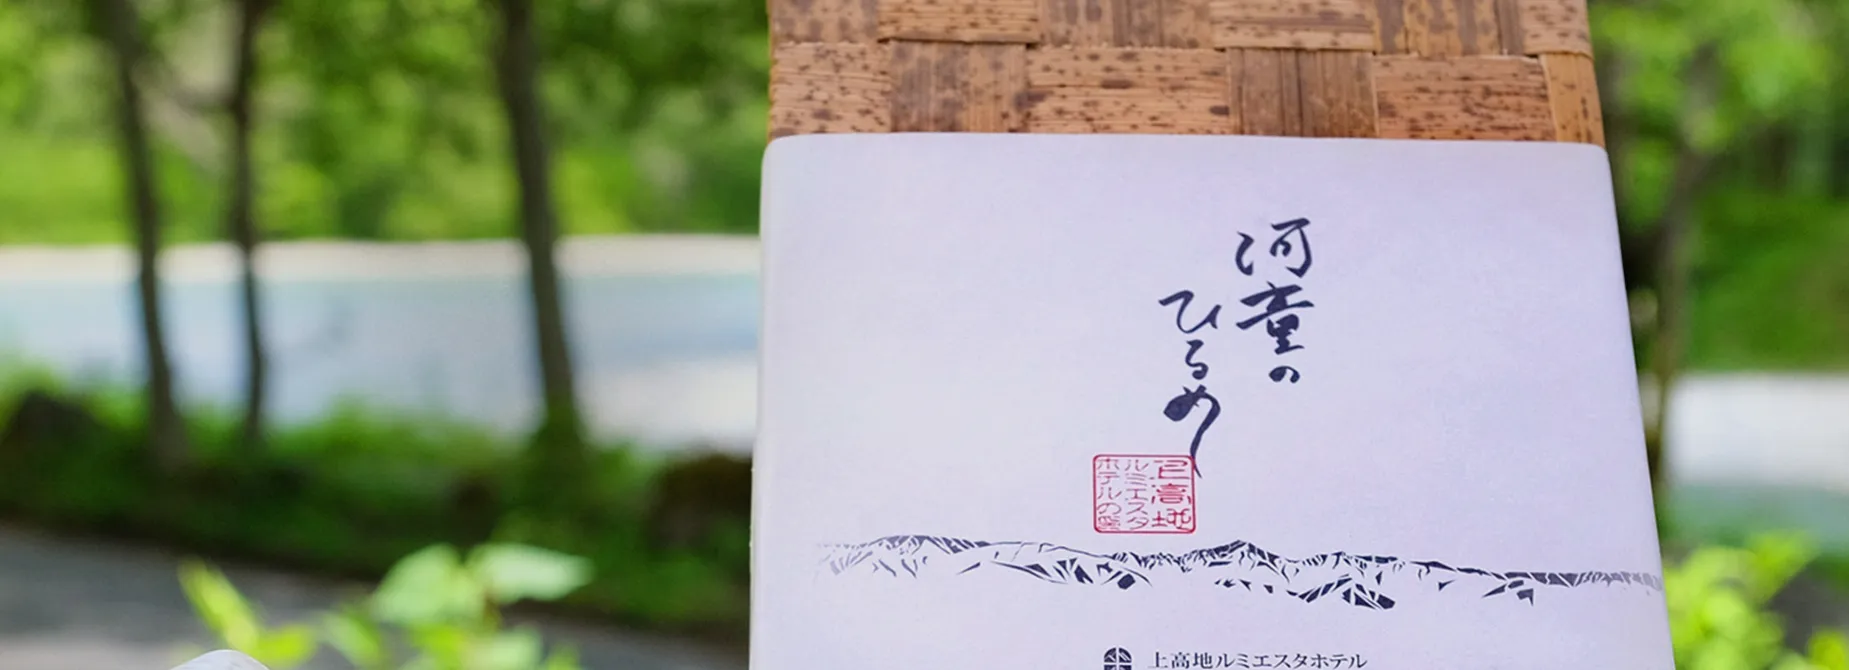 河童の
ひるめし
上高地
ルミエスタ
ホテルの印
上高地ルミエスタホテル